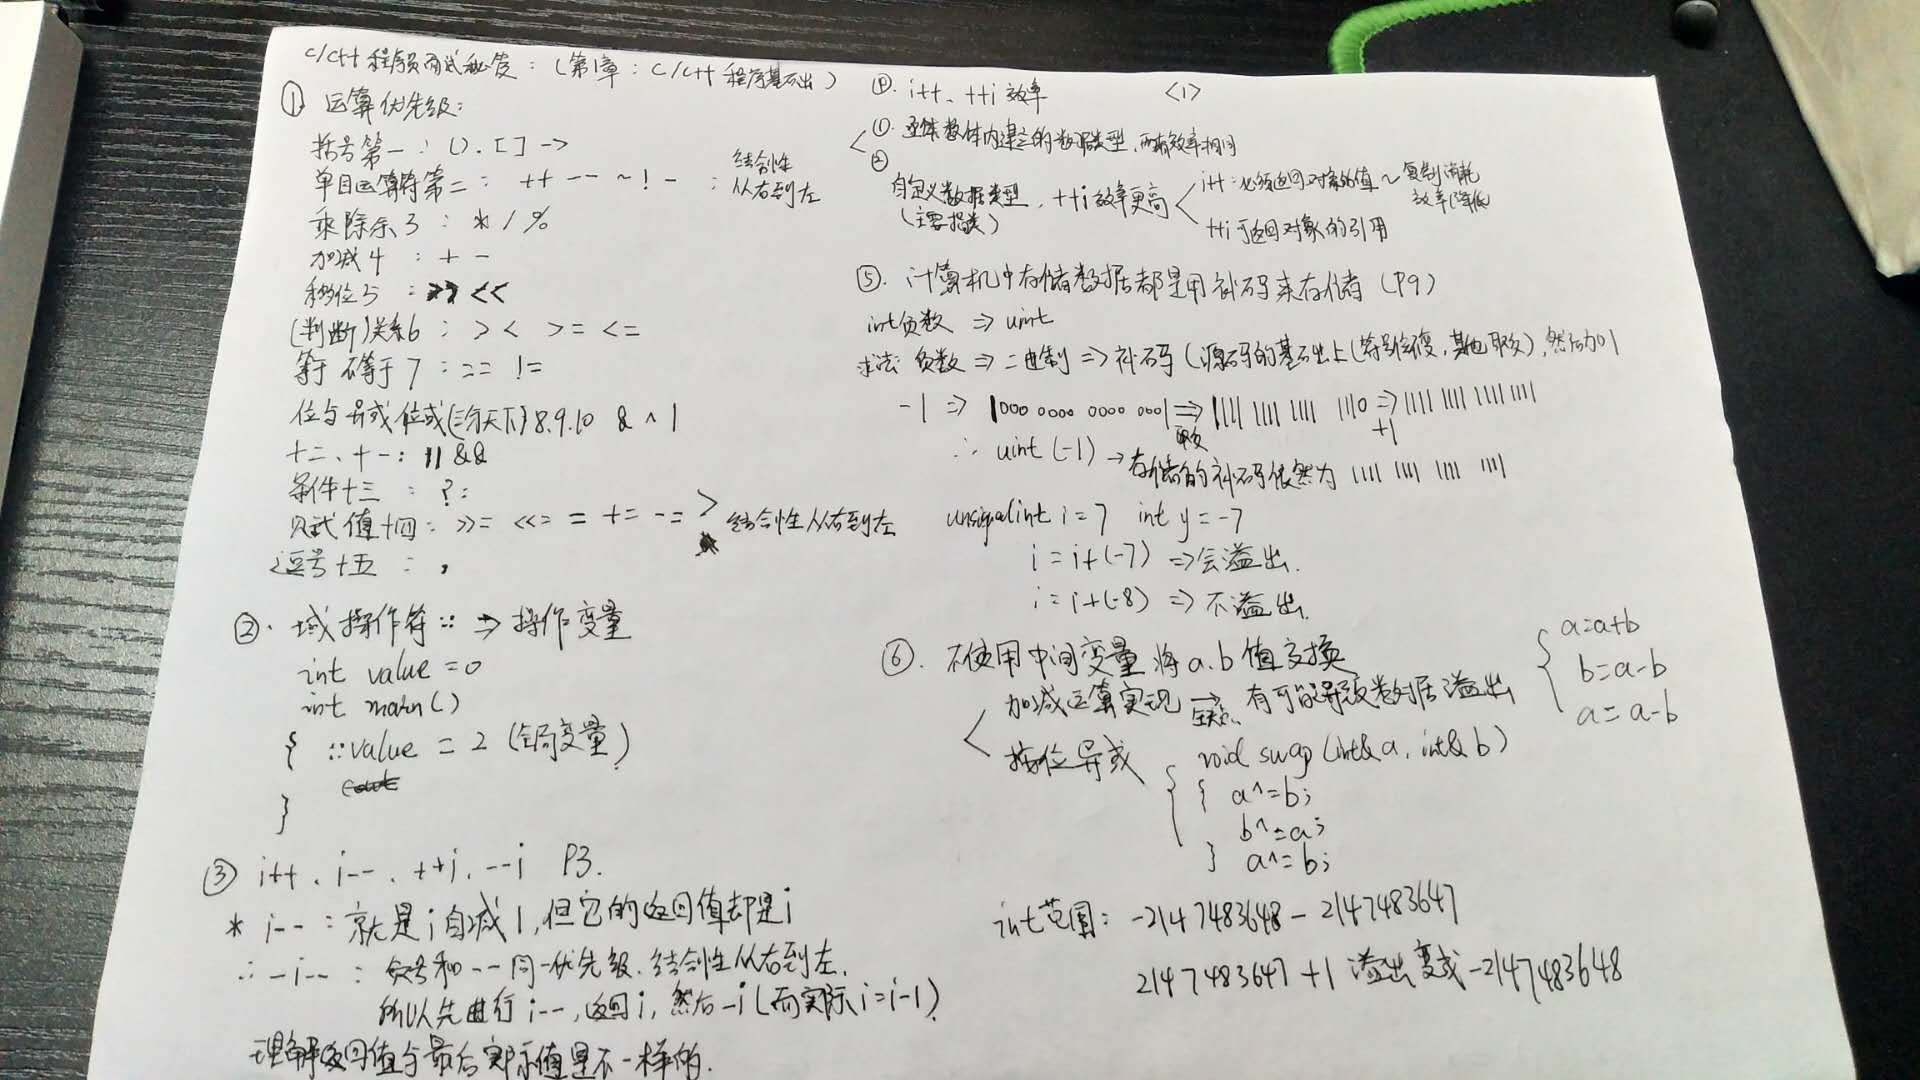 C/C++ 程序员面试秘笈：（第1章：C/C++ 程序基础）
① 运算优先级：
括号第一：() . [] ->
单目运算符第二： ++ -- ~ ! - ： 结合性从右到左
乘除余3 ： * / %
加减4 ： + -
移位5 ： >> <<
(判断)关系6 ： > < >= <=
等于 不等于7 ：== !=
位与 异或 位或(三分天下) 8.9.10 & ^ |
十二、十一： || &&
条件十三 ： ? :
赋值十四： >>= <<= = += -= > 结合性从右到左
逗号十五 ： ,
②. 域操作符 :: => 操作变量
int value = 0
int main()
{ ::value = 2 (全局变量)
}
③ i++、i--、++i、--i P3.
* i-- ：就是i自减1，但它的返回值却是i
∴ -i-- ： 负号和--同一优先级，结合性从右到左，
所以先进行 i--，返回i，然后-i (而实际 i=i-1)
理解返回值与最后实际值是不一样的.
④. i++、++i 效率 <1>
① 内建的数据类型，两者效率相同
② 自定义数据类型，++i 效率更高
(主要指类)
i++：必须返回对象的值 ~ 复制消耗 效率降低
++i 可返回对象的引用
⑤. 计算机中存储数据都是用补码来存储 (P9)
int负数 => uint
求法：负数 => 二进制 => 补码 (源码的基础上(符号位不变，其他取反)，然后加1
-1 => 1000 0000 0000 0001 => 取反 1111 1111 1111 1110 => +1 1111 1111 1111 1111
∴ uint (-1) -> 存储的补码依然为 1111 1111 1111 1111
unsigned int i = 7 int y = -7
i = i+(-7) => 会溢出.
i = i+(-8) => 不溢出.
⑥. 不使用中间变量将a、b值交换
加减运算实现 -> 缺点 有可能导致数据溢出
a=a+b
b=a-b
a=a-b
按位异或
void swap (int& a, int& b)
{ a^=b;
b^=a;
} a^=b;
int范围： -2147483648 - 2147483647
2147483647 +1 溢出变成 -2147483648